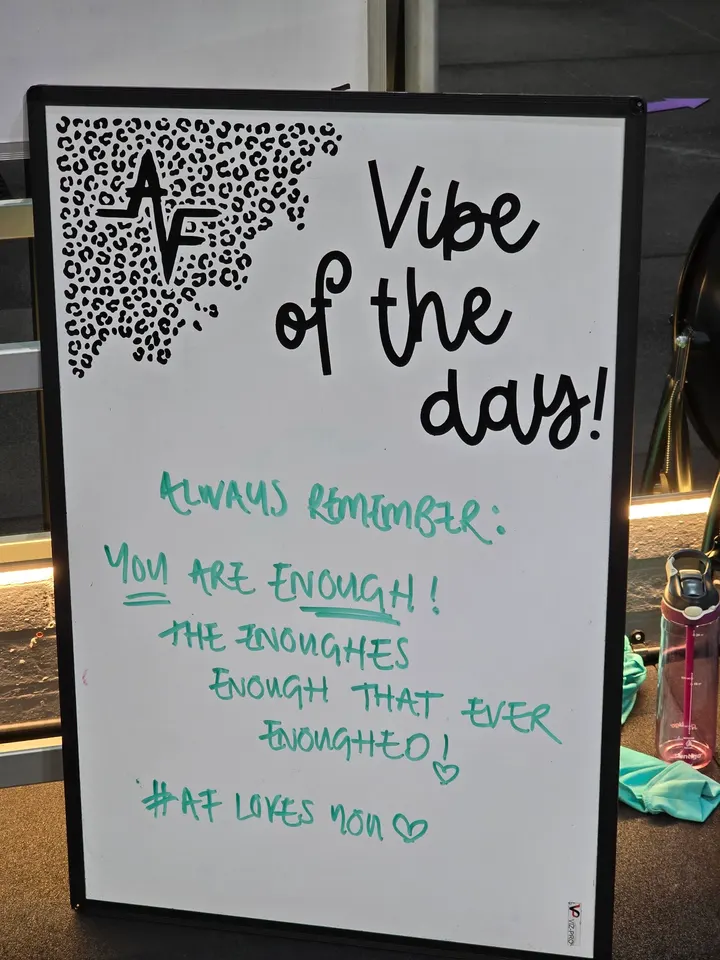 AF
Vibe
of the
day!
ALWAYS REMEMBER:
YOU ARE ENOUGH!
THE ENOUGHES
ENOUGH THAT EVER
ENOUGHED!
#AF LOVES YOU
VIZ-PRO